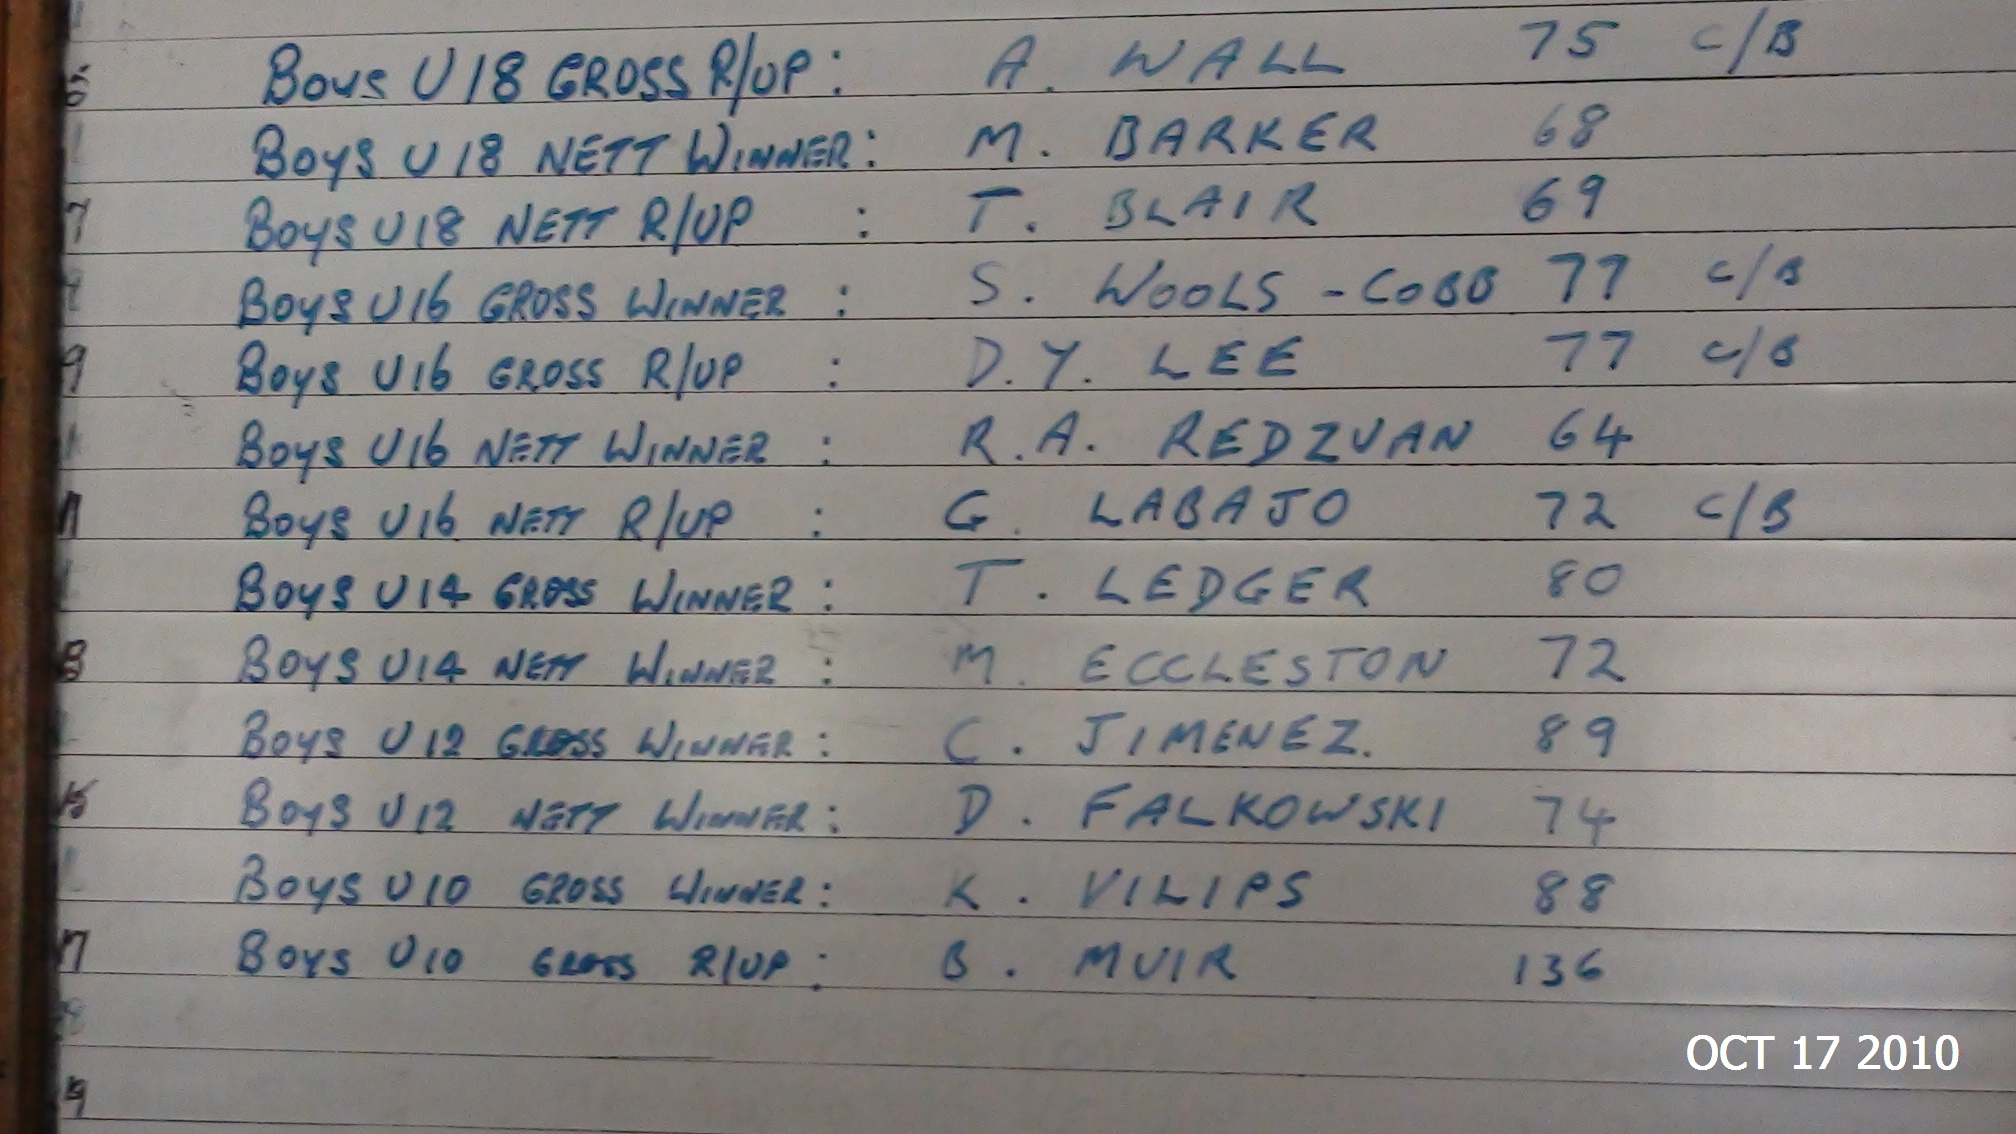 Boys U18 GROSS R/UP : A. WALL 75 C/B
Boys U18 NETT WINNER : M. BARKER 68
7 Boys U18 NETT R/UP : T. BLAIR 69
Boys U16 GROSS WINNER : S. WOOLS-COBB 77 C/B
9 Boys U16 GROSS R/UP : D.Y. LEE 77 C/B
Boys U16 NETT WINNER : R.A. REDZUAN 64
Boys U16 NETT R/UP : G. LABAJO 72 C/B
Boys U14 GROSS WINNER : T. LEDGER 80
Boys U14 NETT WINNER : M. ECCLESTON 72
Boys U12 GROSS WINNER : C. JIMENEZ. 89
15 Boys U12 NETT WINNER : D. FALKOWSKI 74
Boys U10 GROSS WINNER : K. VILIPS 88
17 Boys U10 GROSS R/UP : B. MUIR 136
19
OCT 17 2010